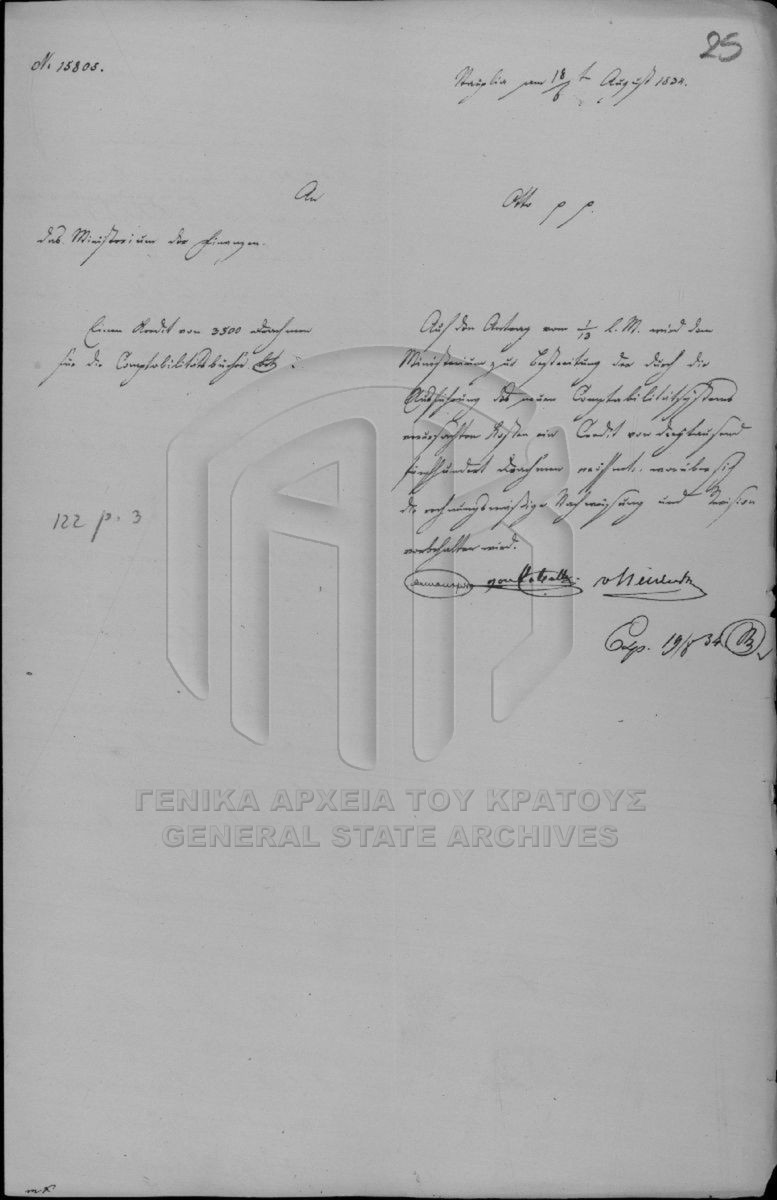 25
N. 15805.
Nauplia am 18/6 t August 1834.
An
das Ministerium der Finanzen.
Otto p p.
Einen Kredit von 3500 Drachmen
für die Comptabilitätsbücher
122 p. 3
Auf den Antrag vom 1/13 l. M. wird dem
Ministerium zur Bestreitung der durch die
Ausführung des neuen Comptabilitätssystems
verursachten Kosten ein Credit von dreytausend
fünfhundert Drachmen eröffnet, worüber sich
die rechnungsmäßige Nachweisung und Revision
vorbehalten wird.
Armansperg von Kobell
Exp. 19/8 34
ΓΕΝΙΚΑ ΑΡΧΕΙΑ ΤΟΥ ΚΡΑΤΟΥΣ
GENERAL STATE ARCHIVES